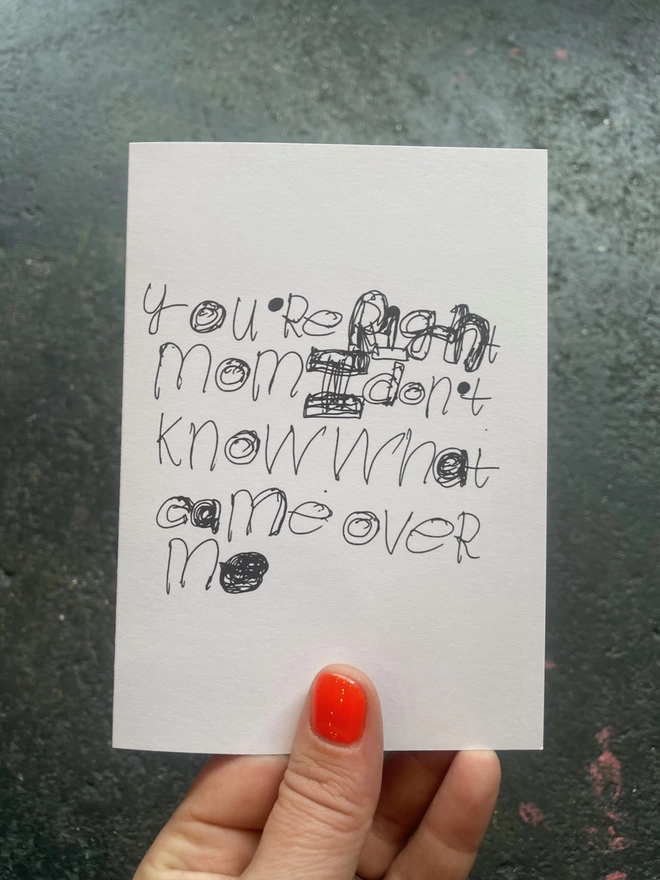 you're Right
MoM I don't
KnoW What
came oveR
Me